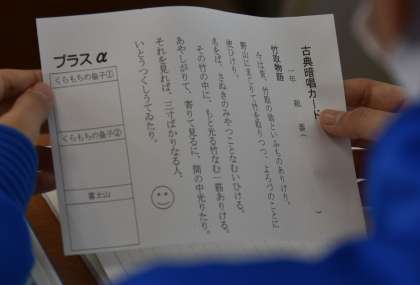 古典暗唱カード
（　年　組　番　　　）
竹取物語
今は昔、竹取の翁といふものありけり。
野山にまじりて竹を取りつつ、よろづのことに
使ひけり。
名をば、さぬきのみやつことなむいひける。
その竹の中に、もと光る竹なむ一筋ありける。
あやしがりて、寄りて見るに、筒の中光りたり。
それを見れば、三寸ばかりなる人、
いとうつくしうてゐたり。
プラスα
くらもちの皇子①
くらもちの皇子②
富士山